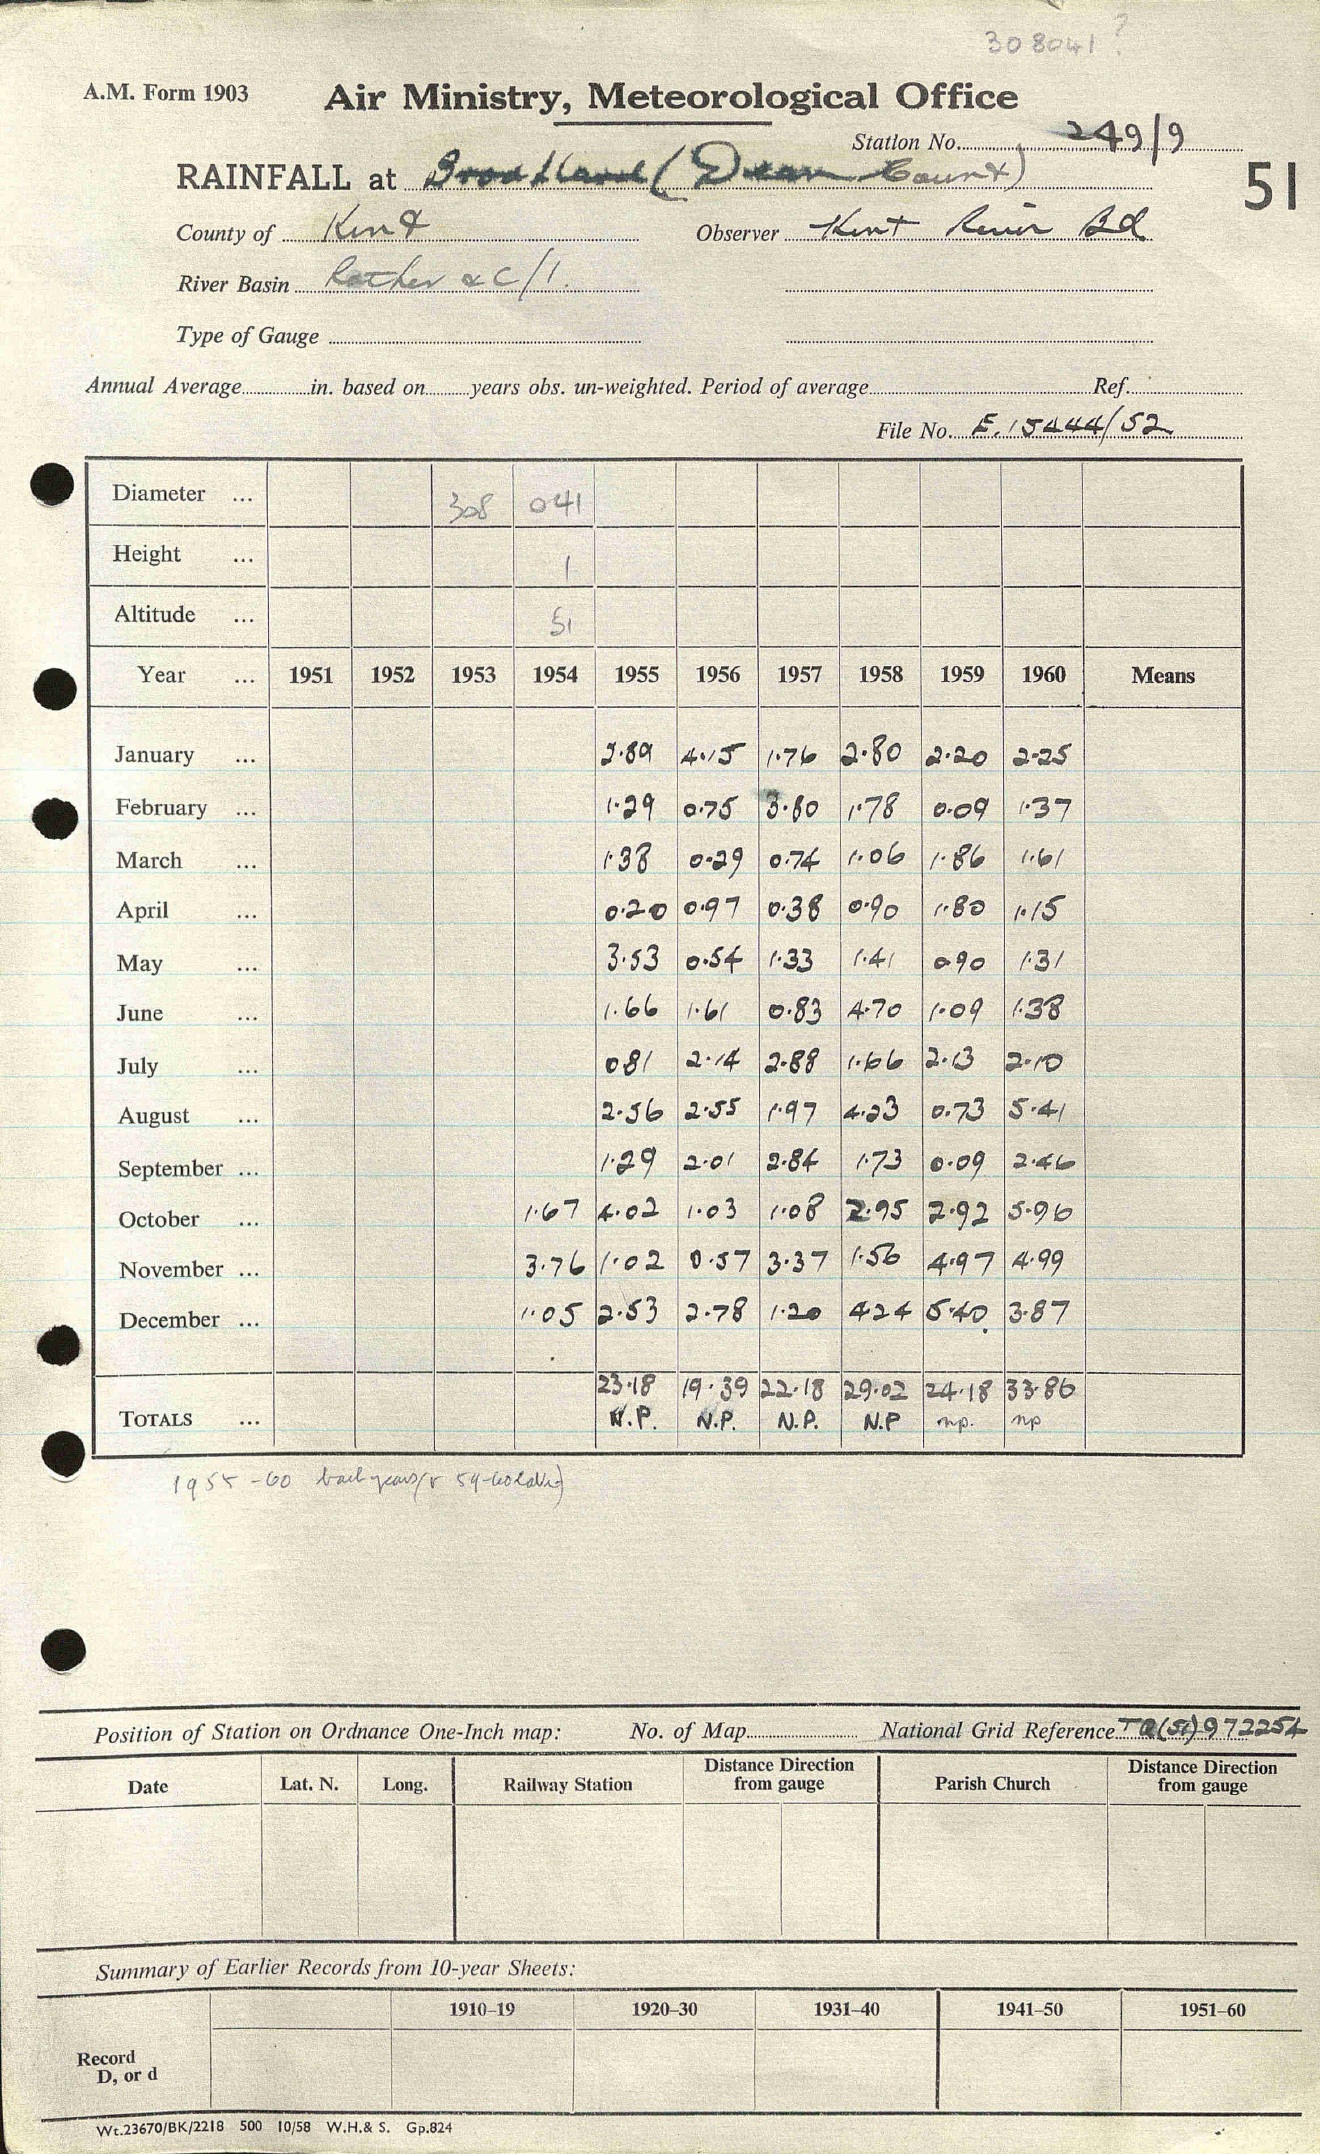 308041?
A.M. Form 1903
Air Ministry, Meteorological Office
Station No. 249/9
RAINFALL at Broadland (Dean Court)
51
County of Kent Observer Kent River Bd
River Basin Rother & C/1.
Type of Gauge
Annual Average in. based on years obs. un-weighted. Period of average Ref.
File No. E.15444/52
Diameter ... 308 041
Height ... 1
Altitude ... 51
Year ... 1951 1952 1953 1954 1955 1956 1957 1958 1959 1960 Means
January ... 2.89 4.15 1.76 2.80 2.20 2.25
February ... 1.29 0.75 3.80 1.78 0.09 1.37
March ... 1.38 0.29 0.74 1.06 1.86 1.61
April ... 0.20 0.97 0.38 0.90 1.80 1.15
May ... 3.53 0.54 1.33 1.41 0.90 1.31
June ... 1.66 1.61 0.83 4.70 1.09 1.38
July ... 0.81 2.14 2.88 1.66 2.13 2.10
August ... 2.56 2.55 1.97 4.23 0.73 5.41
September ... 1.29 2.01 2.84 1.73 0.09 2.46
October ... 1.67 4.02 1.03 1.08 2.95 2.92 5.96
November ... 3.76 1.02 0.57 3.37 1.56 4.97 4.99
December ... 1.05 2.53 2.78 1.20 4.24 5.40 3.87
23.18 19.39 22.18 29.02 24.18 33.86
TOTALS ... N.P. N.P. N.P. N.P np. np
1955-60 back years
Position of Station on Ordnance One-Inch map: No. of Map National Grid Reference TQ(51)972254
Date Lat. N. Long. Railway Station Distance Direction from gauge Parish Church Distance Direction from gauge
Summary of Earlier Records from 10-year Sheets:
1910–19 1920–30 1931–40 1941–50 1951–60
Record
D, or d
Wt.23670/BK/2218 500 10/58 W.H.& S. Gp.824